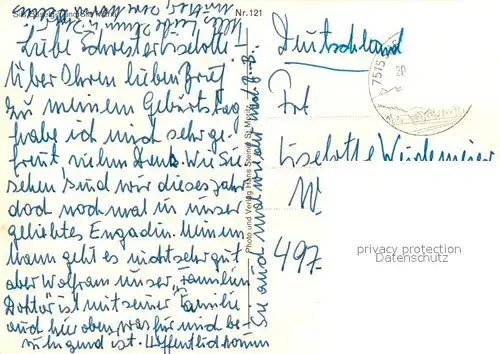 Nr. 121
Liebe Schwester Liselotte!
Über Ihren lieben Brief
zu meinem Geburtstag
habe ich mich sehr ge-
freut vielen Dank. Wie Sie
sehen sind wir dieses Jahr
doch nochmal in unser
geliebtes Engadin. Meinem
Mann geht es nicht sehr gut
aber Wolfram unser "Familien
Doktor" ist mit seiner Familie
auch hier oben was für mich be-
ruhigend ist. Hoffentlich kommen
Sie auch mal wieder nach
Photo und Verlag Hans Steiner, St. Moritz
Deutschland
7515
Frl
Liselotte
W
497-
privacy protection
Datenschutz